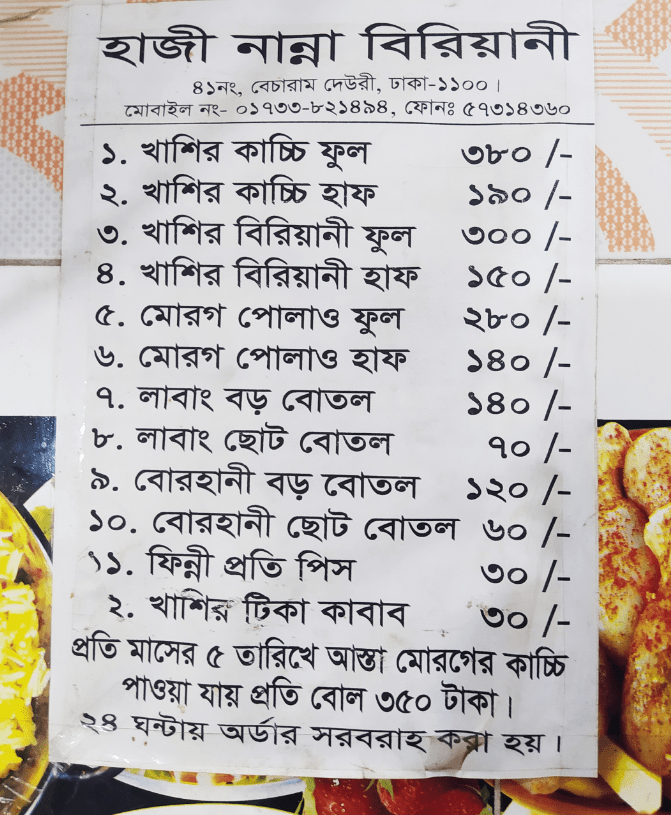 হাজী নান্না বিরিয়ানী
৪১নং, বেচারাম দেউরী, ঢাকা-১১০০।
মোবাইল নং- ০১৭৩৩-৮২১৪৯৪, ফোনঃ ৫৭৩১৪৩৬০
১. খাশির কাচ্চি ফুল ৩৮০ /-
২. খাশির কাচ্চি হাফ ১৯০ /-
৩. খাশির বিরিয়ানী ফুল ৩০০ /-
৪. খাশির বিরিয়ানী হাফ ১৫০ /-
৫. মোরগ পোলাও ফুল ২৮০ /-
৬. মোরগ পোলাও হাফ ১৪০ /-
৭. লাবাং বড় বোতল ১৪০ /-
৮. লাবাং ছোট বোতল ৭০ /-
৯. বোরহানী বড় বোতল ১২০ /-
১০. বোরহানী ছোট বোতল ৬০ /-
১১. ফিন্নী প্রতি পিস ৩০ /-
২. খাশির টিকা কাবাব ৩০ /-
প্রতি মাসের ৫ তারিখে আস্তা মোরগের কাচ্চি
পাওয়া যায় প্রতি বোল ৩৫০ টাকা।
২৪ ঘন্টায় অর্ডার সরবরাহ করা হয়।